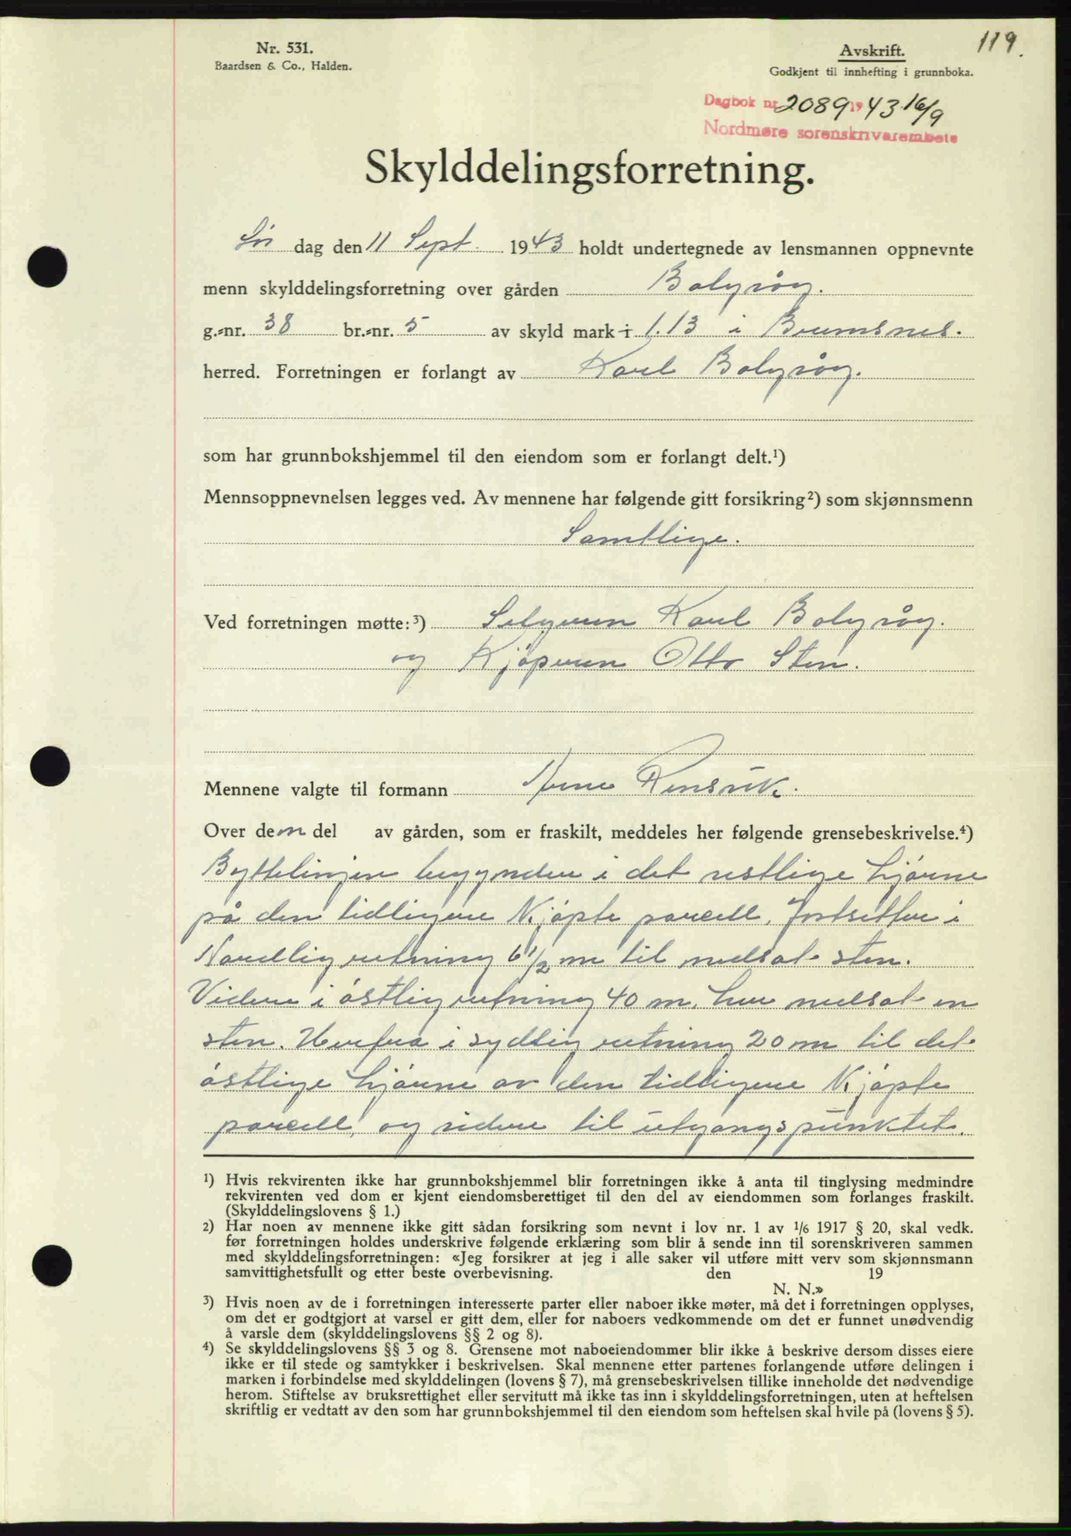 119.
Nr. 531.
Baardsen & Co., Halden.
Avskrift.
Godkjent til innhefting i grunnboka.
Dagbok nr. 2089 1943 16/9
Nordmøre sorenskriverembete
Skylddelingsforretning.
Lør dag den 11 Sept. 1943 holdt undertegnede av lensmannen oppnevnte
menn skylddelingsforretning over gården Bolgvåg.
g.-nr. 38 br.-nr. 5 av skyld mark i 1.13 i Bremsnes.
herred. Forretningen er forlangt av Karl Bolgvåg.
som har grunnbokshjemmel til den eiendom som er forlangt delt.¹)
Mennsoppnevnelsen legges ved. Av mennene har følgende gitt forsikring²) som skjønnsmenn
Samtlige.
Ved forretningen møtte:³) Selgeren Karl Bolgvåg.
og Kjøperen Otto Sten.
Mennene valgte til formann Arne Rensvik.
Over den del av gården, som er fraskilt, meddeles her følgende grensebeskrivelse.⁴)
Byttelinjen begynder i det vestlige hjørne
på den tidligere Kjøpte parcell, fortsetter i
Nordlig retning 6 1/2 m til nedsat sten.
Videre i østlig retning 40 m, her nedsat en
sten. Herfra i sydlig retning 20 m til det
østlige hjørne av den tidligere Kjøpte
parcell, og videre til utgangspunktet.
¹) Hvis rekvirenten ikke har grunnbokshjemmel blir forretningen ikke å anta til tinglysing medmindre
rekvirenten ved dom er kjent eiendomsberettiget til den del av eiendommen som forlanges fraskilt.
(Skylddelingslovens § 1.)
²) Har noen av mennene ikke gitt sådan forsikring som nevnt i lov nr. 1 av ¹/₆ 1917 § 20, skal vedk.
før forretningen holdes underskrive følgende erklæring som blir å sende inn til sorenskriveren sammen
med skylddelingsforretningen: «Jeg forsikrer at jeg i alle saker vil utføre mitt verv som skjønnsmann
samvittighetsfullt og etter beste overbevisning. den 19
N. N.»
³) Hvis noen av de i forretningen interesserte parter eller naboer ikke møter, må det i forretningen opplyses,
om det er godtgjort at varsel er gitt dem, eller for naboers vedkommende om det er funnet unødvendig
å varsle dem (skylddelingslovens §§ 2 og 8).
⁴) Se skylddelingslovens §§ 3 og 8. Grensene mot naboeiendommer blir ikke å beskrive dersom disses eiere
ikke er til stede og samtykker i beskrivelsen. Skal mennene etter partenes forlangende utføre delingen i
marken i forbindelse med skylddelingen (lovens § 7), må grensebeskrivelsen tillike inneholde det nødvendige
herom. Stiftelse av bruksrettighet eller servitutt må ikke tas inn i skylddelingsforretningen, uten at heftelsen
skriftlig er vedtatt av den som har grunnbokshjemmel til den eiendom som heftelsen skal hvile på (lovens § 5).